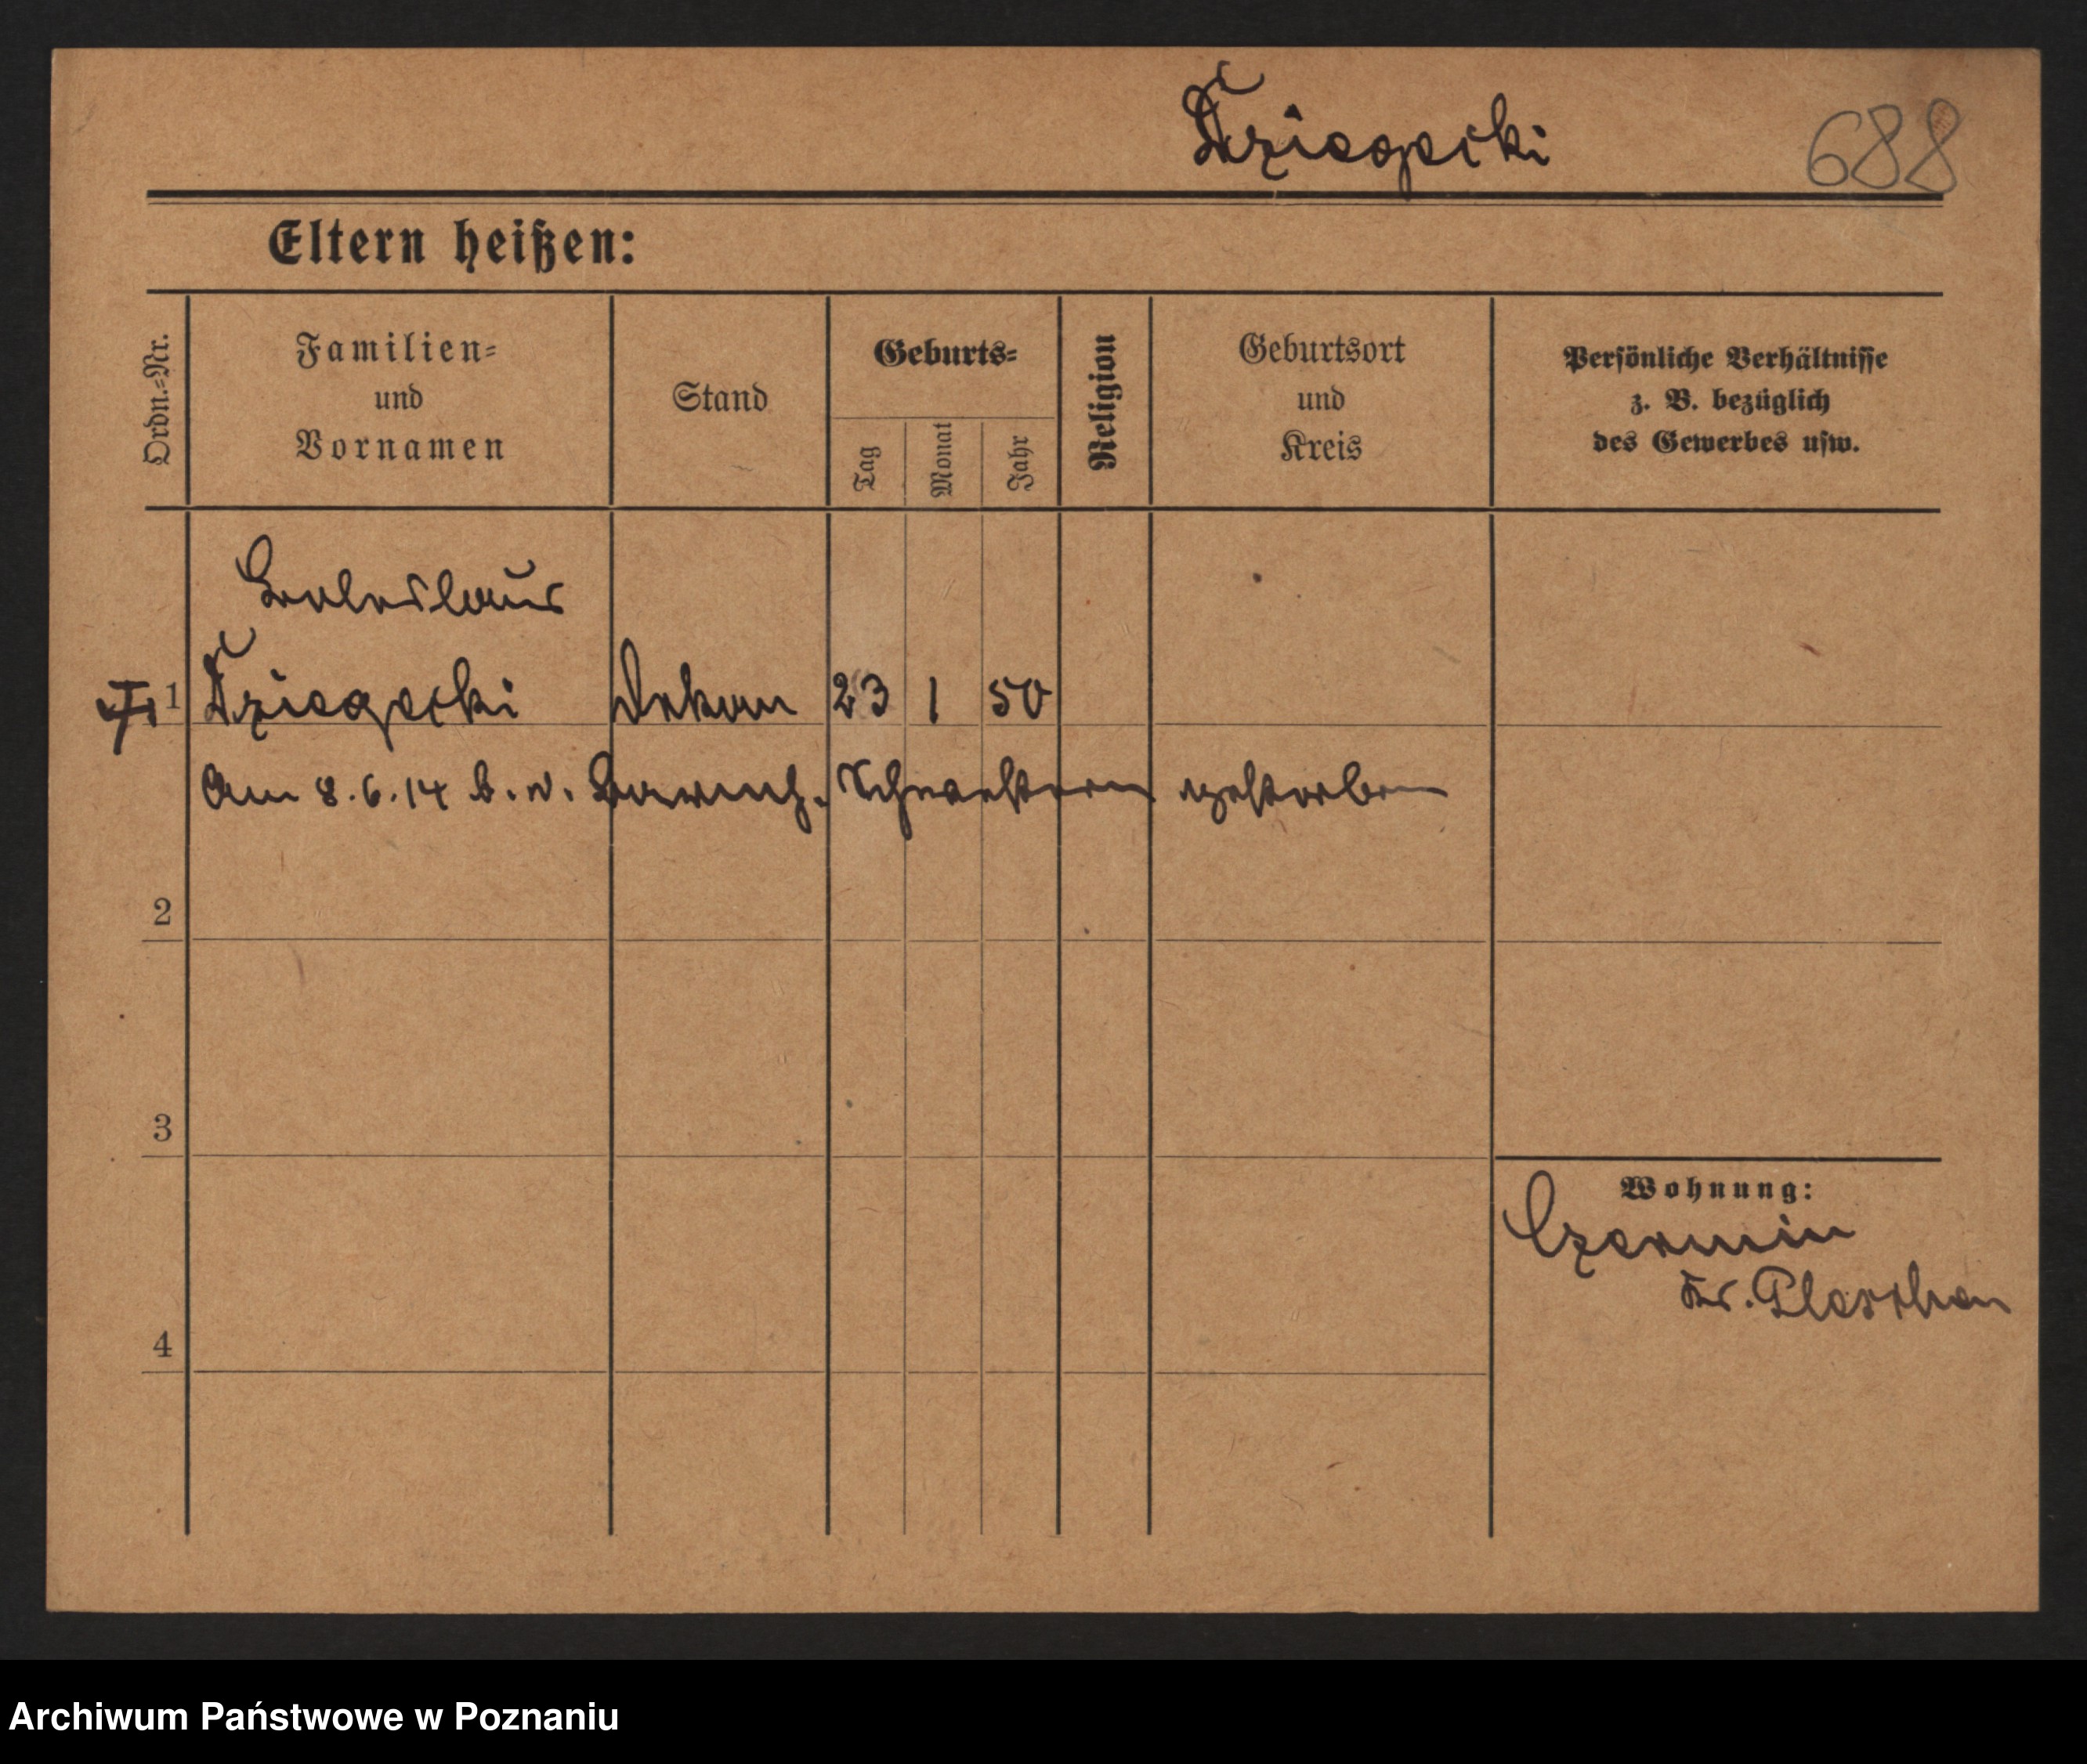 688
Eltern heißen:
Ordn.=Nr.
Familien=
und
Vornamen
Stand
Geburts=
Tag
Monat
Jahr
Religion
Geburtsort
und
Kreis
Persönliche Verhältnisse
z. B. bezüglich
des Gewerbes usw.
Boleslaus
1 Dekan 23 1 50
Am 8.6.14 b. d. Barmh. Schwestern gestorben
2
3
Wohnung:
Czermin
Kr. Pleschen
4
Archiwum Państwowe w Poznaniu